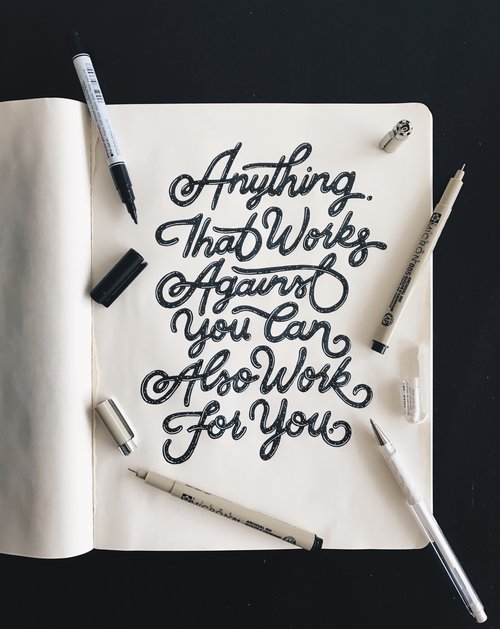 Anything.
That Works
Against
You Can
Also Work
For You.
MICRON
MICRON